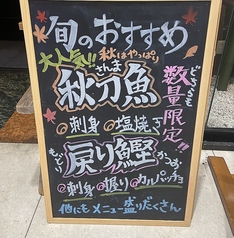 旬のおすすめ
大人気!!
秋はやっぱり
さんま
秋刀魚
どちらも
数量限定!!
刺身 塩焼
もどり がつお
戻り鰹
刺身 握り カルパッチョ
他にもメニュー盛りだくさん